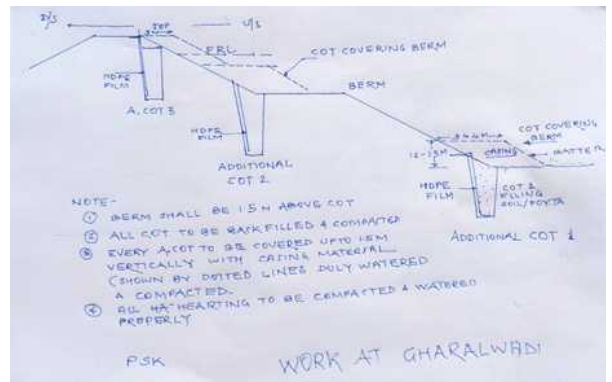 D/S
TOP
U/S
FRL
COT COVERING BERM
HDPE
FILM
A, COT 3
BERM
HDPE
FILM
ADDITIONAL
COT 2
COT COVERING
BERM
CASING
BATTER
HDPE
FILM
COT 1
FILLING
SOIL/POYTA
ADDITIONAL COT 1
NOTE-
① BERM SHALL BE 1.5 M ABOVE COT
② ALL COT TO BE BACK FILLED & COMPACTED
③ EVERY A, COT TO BE COVERED UPTO 1.5M
VERTICALLY WITH CASING MATERIAL
(SHOWN BY DOTTED LINES DULY WATERED
& COMPACTED.
④ ALL HEARTING TO BE COMPACTED & WATERED
PROPERLY
PSK
WORK AT GHARALWADI